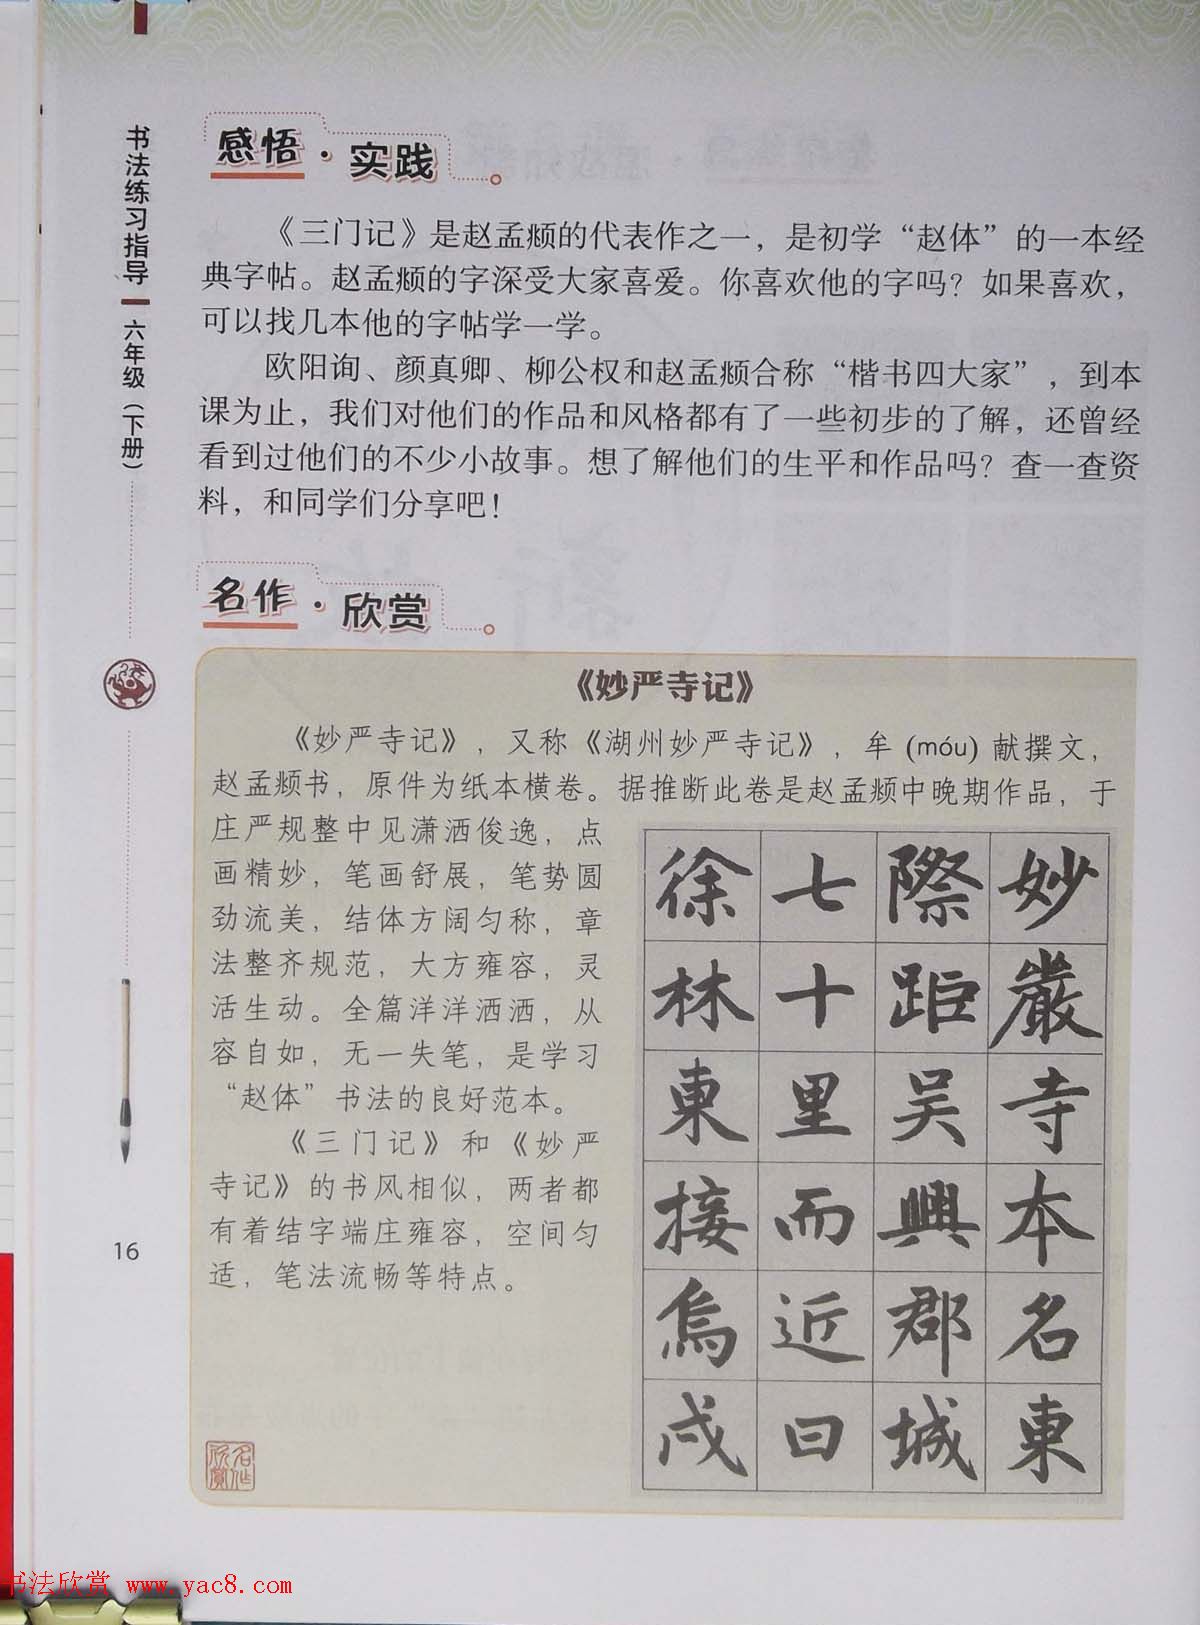 书法练习指导
六年级（下册）
感悟·实践
《三门记》是赵孟頫的代表作之一，是初学“赵体”的一本经
典字帖。赵孟頫的字深受大家喜爱。你喜欢他的字吗？如果喜欢，
可以找几本他的字帖学一学。
欧阳询、颜真卿、柳公权和赵孟頫合称“楷书四大家”，到本
课为止，我们对他们的作品和风格都有了一些初步的了解，还曾经
看到过他们的不少小故事。想了解他们的生平和作品吗？查一查资
料，和同学们分享吧！
名作·欣赏
《妙严寺记》
《妙严寺记》，又称《湖州妙严寺记》，牟 (móu) 献撰文，
赵孟頫书，原件为纸本横卷。据推断此卷是赵孟頫中晚期作品，于
庄严规整中见潇洒俊逸，点
画精妙，笔画舒展，笔势圆
劲流美，结体方阔匀称，章
法整齐规范，大方雍容，灵
活生动。全篇洋洋洒洒，从
容自如，无一失笔，是学习
“赵体”书法的良好范本。
《三门记》和《妙严
寺记》的书风相似，两者都
有着结字端庄雍容，空间匀
适，笔法流畅等特点。
妙嚴寺本名東
際距吴興郡城
七十里而近曰
徐林東接烏戍
名作欣赏
16
书法欣赏 www.yac8.com